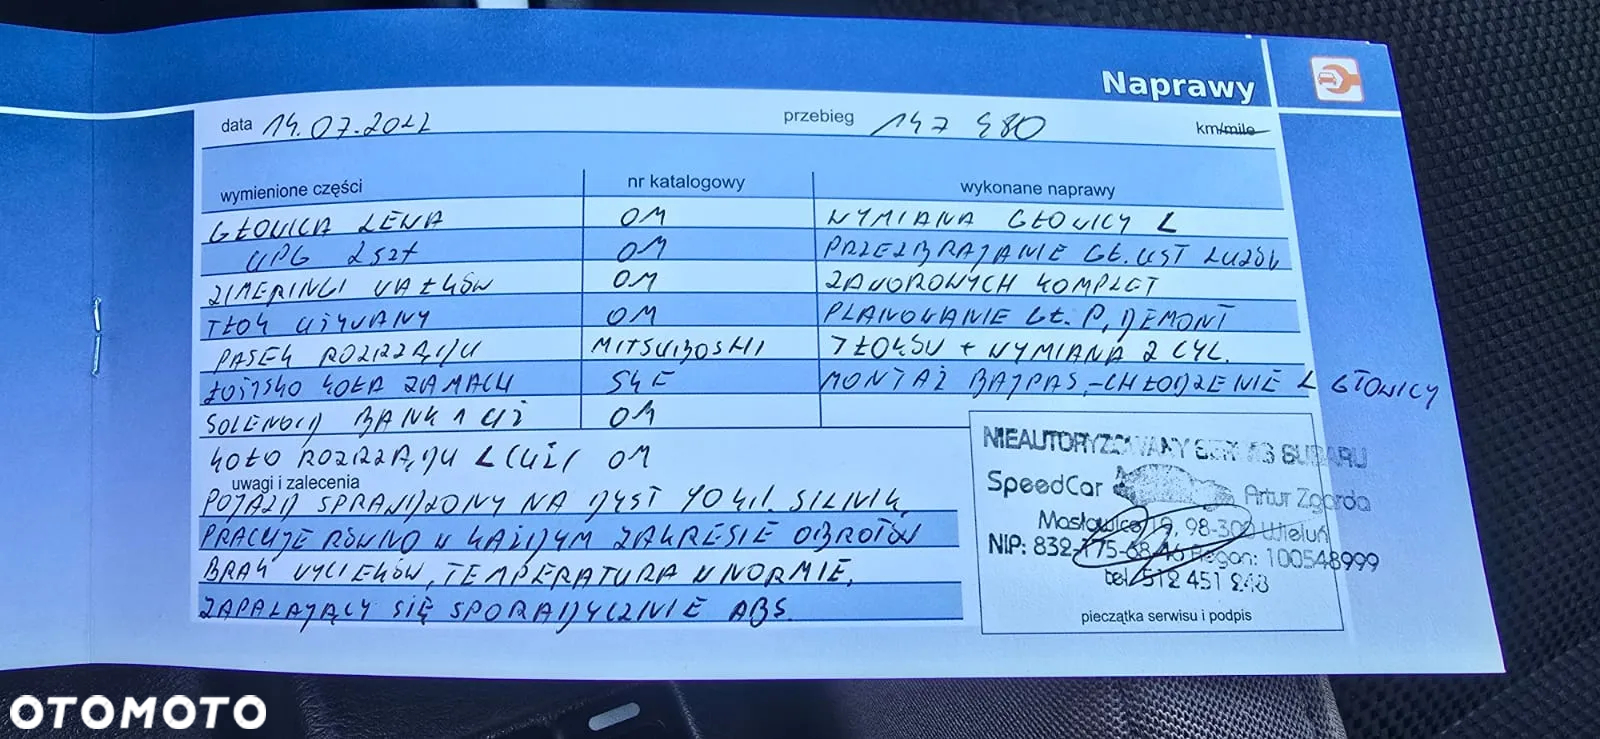 Naprawy
data 14.07.2022 przebieg 147 980 km/mile
wymienione części nr katalogowy wykonane naprawy
GŁOWICA LEWA OM WYMIANA GŁOWICY L
UPG 2 szt OM PRZEZBRAJANIE GŁ. UST LUZÓW
ZIMERINGI WAŁKÓW OM ZAWOROWYCH KOMPLET
TŁOK UŻYWANY OM PLANOWANIE GŁ. P, DEMONT
PASEK ROZRZĄDU MITSUBOSHI TŁOKÓW + WYMIANA 2 CYL.
ŁOŻYSKO KOŁA ZAMACH SKF MONTAŻ BAJPAS,-CHŁODZENIE L GŁOWICY
SOLENOID BANK 1 UŻ OM
KOŁO ROZRZĄDU L (UŻ) OM
uwagi i zalecenia
POJAZD SPRAWDZONY NA DYST 70 kil. SILNIK
PRACUJE RÓWNO W KAŻDYM ZAKRESIE OBROTÓW
BRAK WYCIEKÓW, TEMPERATURA W NORMIE,
ZAPALAJĄCY SIĘ SPORADYCZNIE ABS.
NIEAUTORYZOWANY SERWIS SUBARU
SpeedCar Artur Zgorda
Masłowice 19, 98-300 Wieluń
NIP: 832-175-68-46 Regon: 100548999
tel. 512 451 248
pieczątka serwisu i podpis
OTOMOTO